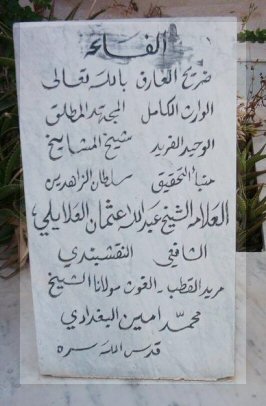 الفاتحة
ضريح العارف بالله تعالى
الوارث الكامل المجتهد المطلق
الوحيد الفريد شيخ المشايخ
التحقيق سلطان الزاهدين
العلامة الشيخ عبدالله عثمان العلايلي
الشافعي النقشبندي
مريد القطب - الغوث مولانا الشيخ
محمد امين البغدادي
قدس الله سره